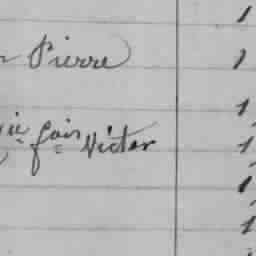 1
Pierre 1
1
fois Victor 1
1
1